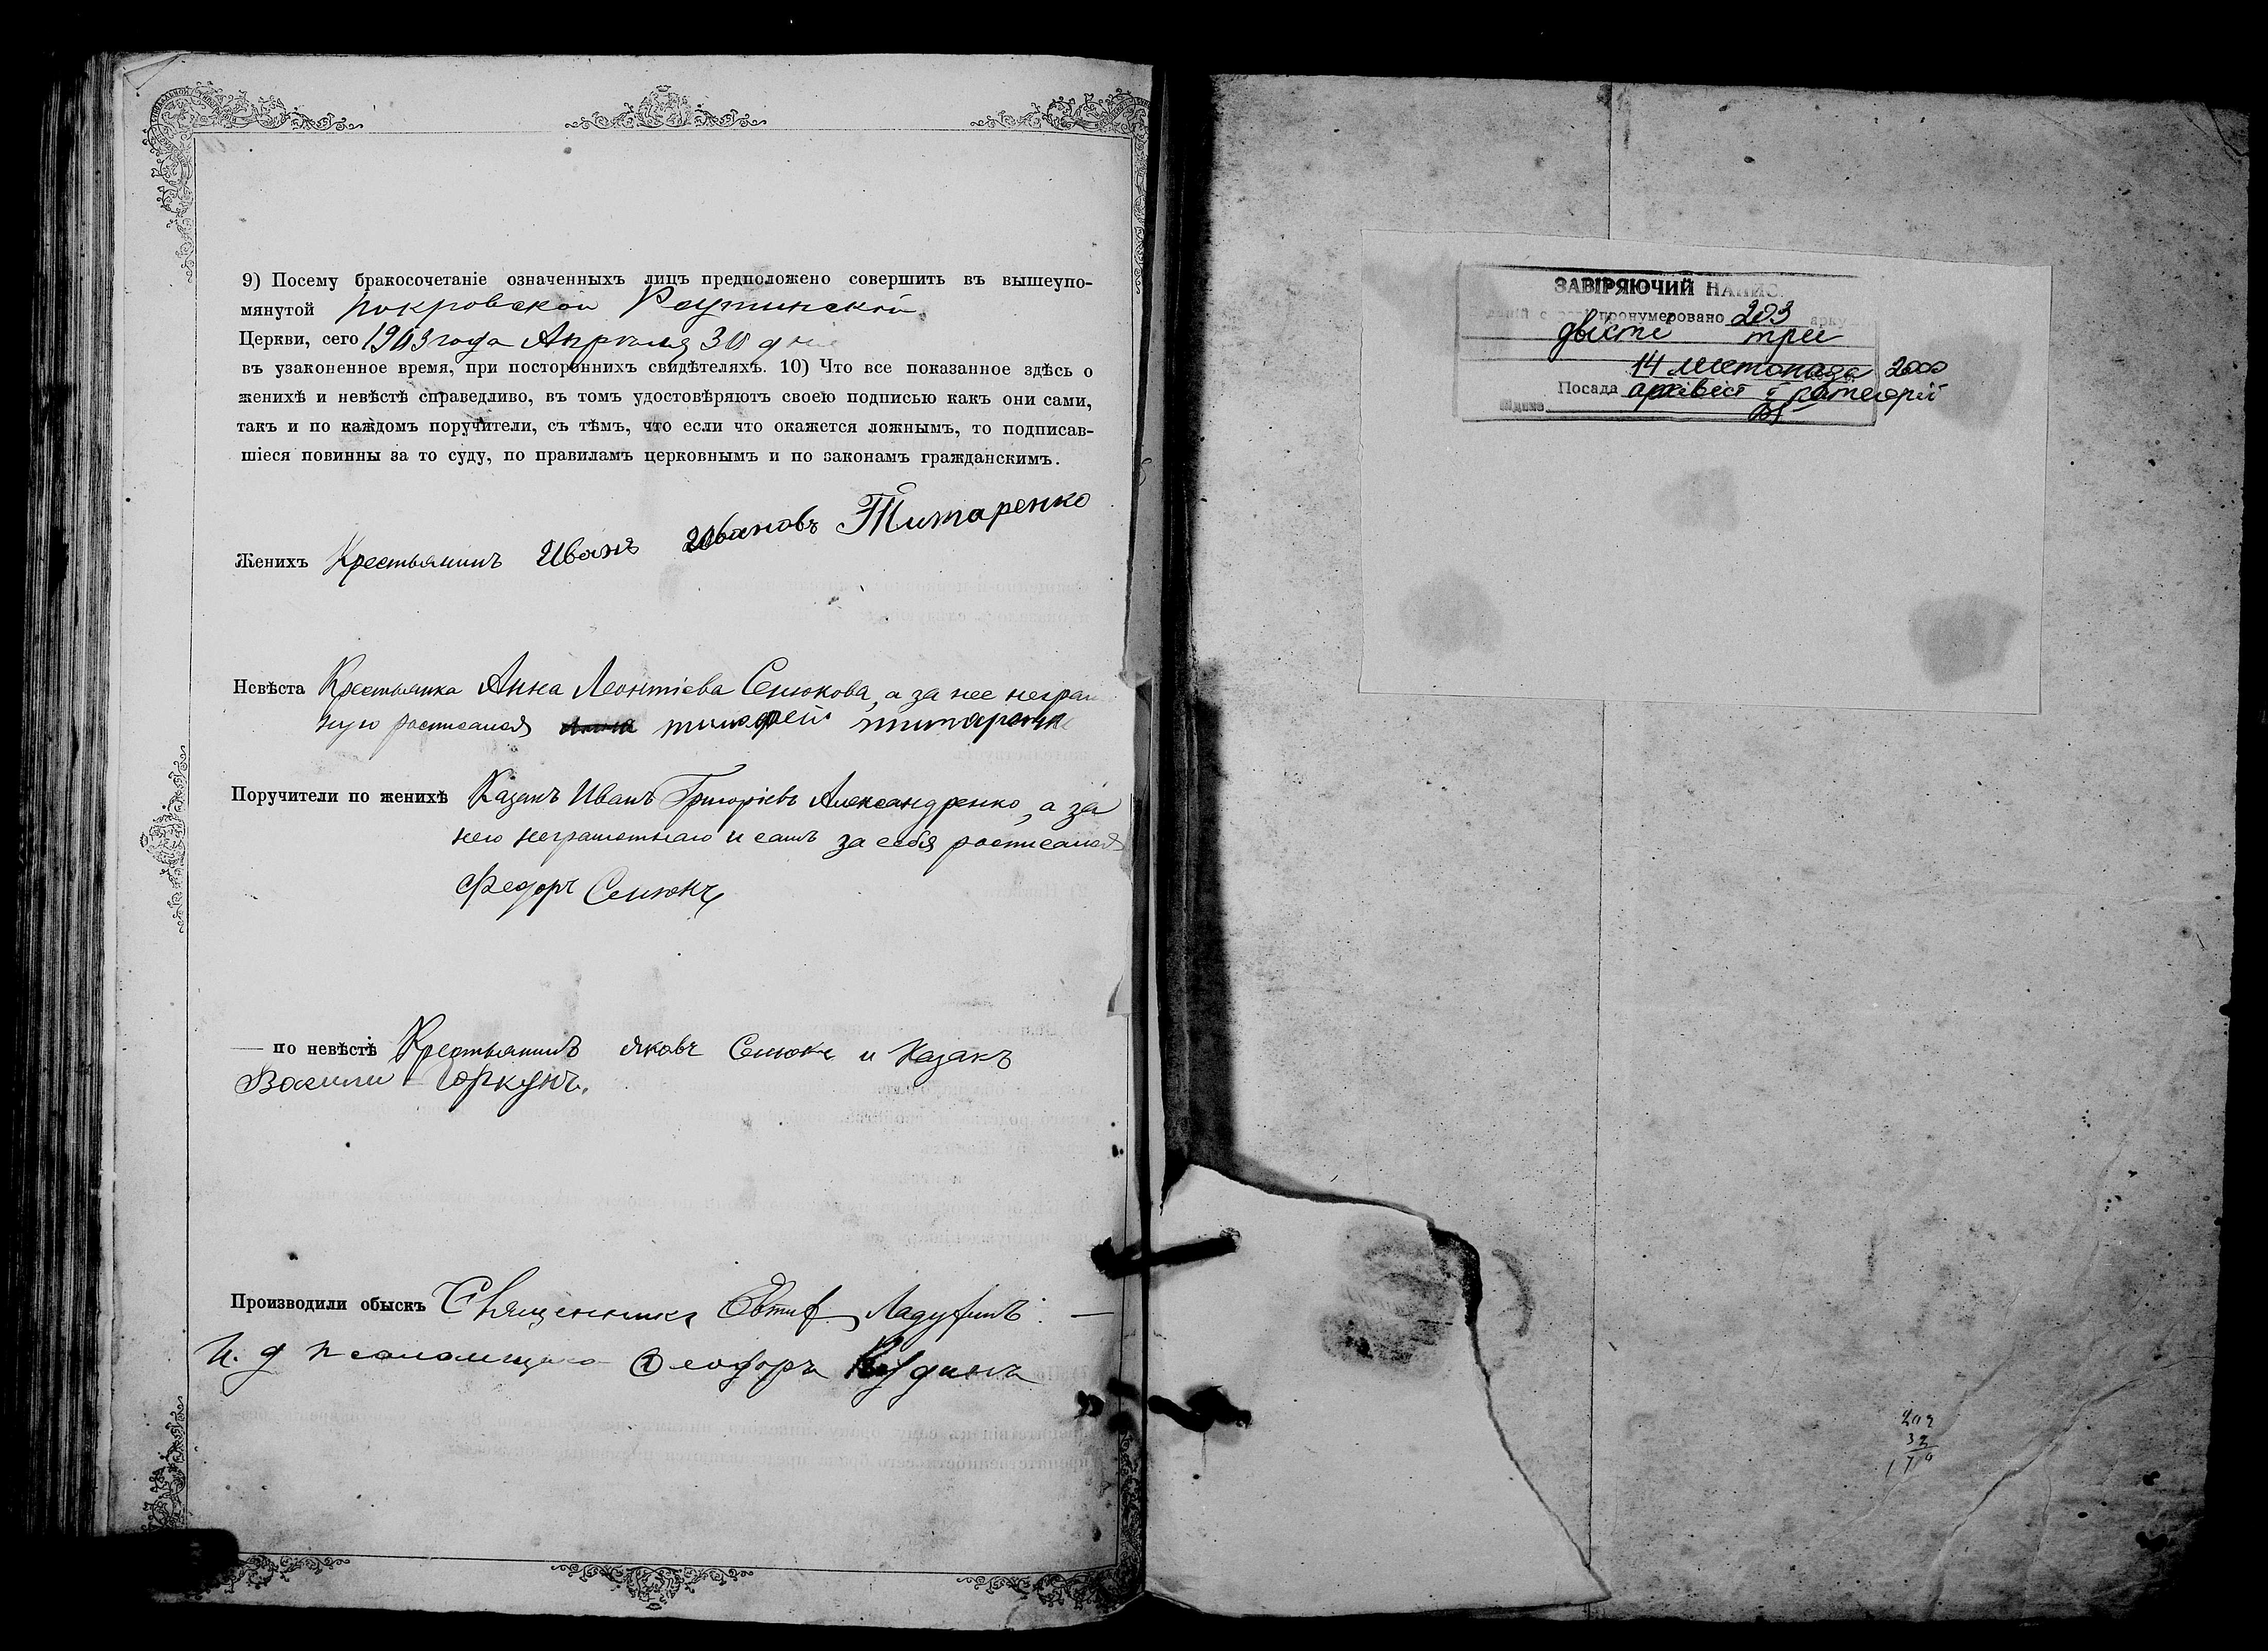 9) Посему бракосочетаніе означенныхъ лицъ предположено совершить въ вышеупо-
мянутой Покровской
Церкви, сего 1903 года Апреля 30 дня
въ узаконенное время, при постороннихъ свидѣтеляхъ. 10) Что все показанное здѣсь о
женихѣ и невѣстѣ справедливо, въ томъ удостовѣряютъ своею подписью какъ они сами,
такъ и по каждомъ поручители, съ тѣмъ, что если что окажется ложнымъ, то подписав-
шіеся повинны за то суду, по правиламъ церковнымъ и по законамъ гражданскимъ.
Женихъ Крестьянинъ Иванъ Ивановъ Титаренко
Невѣста Крестьянка Анна Леонтіева Сенюкова, а за нее неграм
ную росписался тимофей титаренко
Поручители по женихѣ Казакъ Иванъ Григоріевъ Александренко, а за
него неграмотнаго и самъ за себя росписался
Федоръ Сенюкъ
— по невѣстѣ Крестьянинъ Яковъ Сенюкъ и Казакъ
Васили Юркунъ.
Производили обыскъ Священникъ Евтиф.
И. д псаломщика Ѳеодоръ
ЗАВІРЯЮЧИЙ НАПИС
пронумеровано 203 арку
двісті три
14 листопада 2000
Посада архівіст ІІ категорії
Підпис